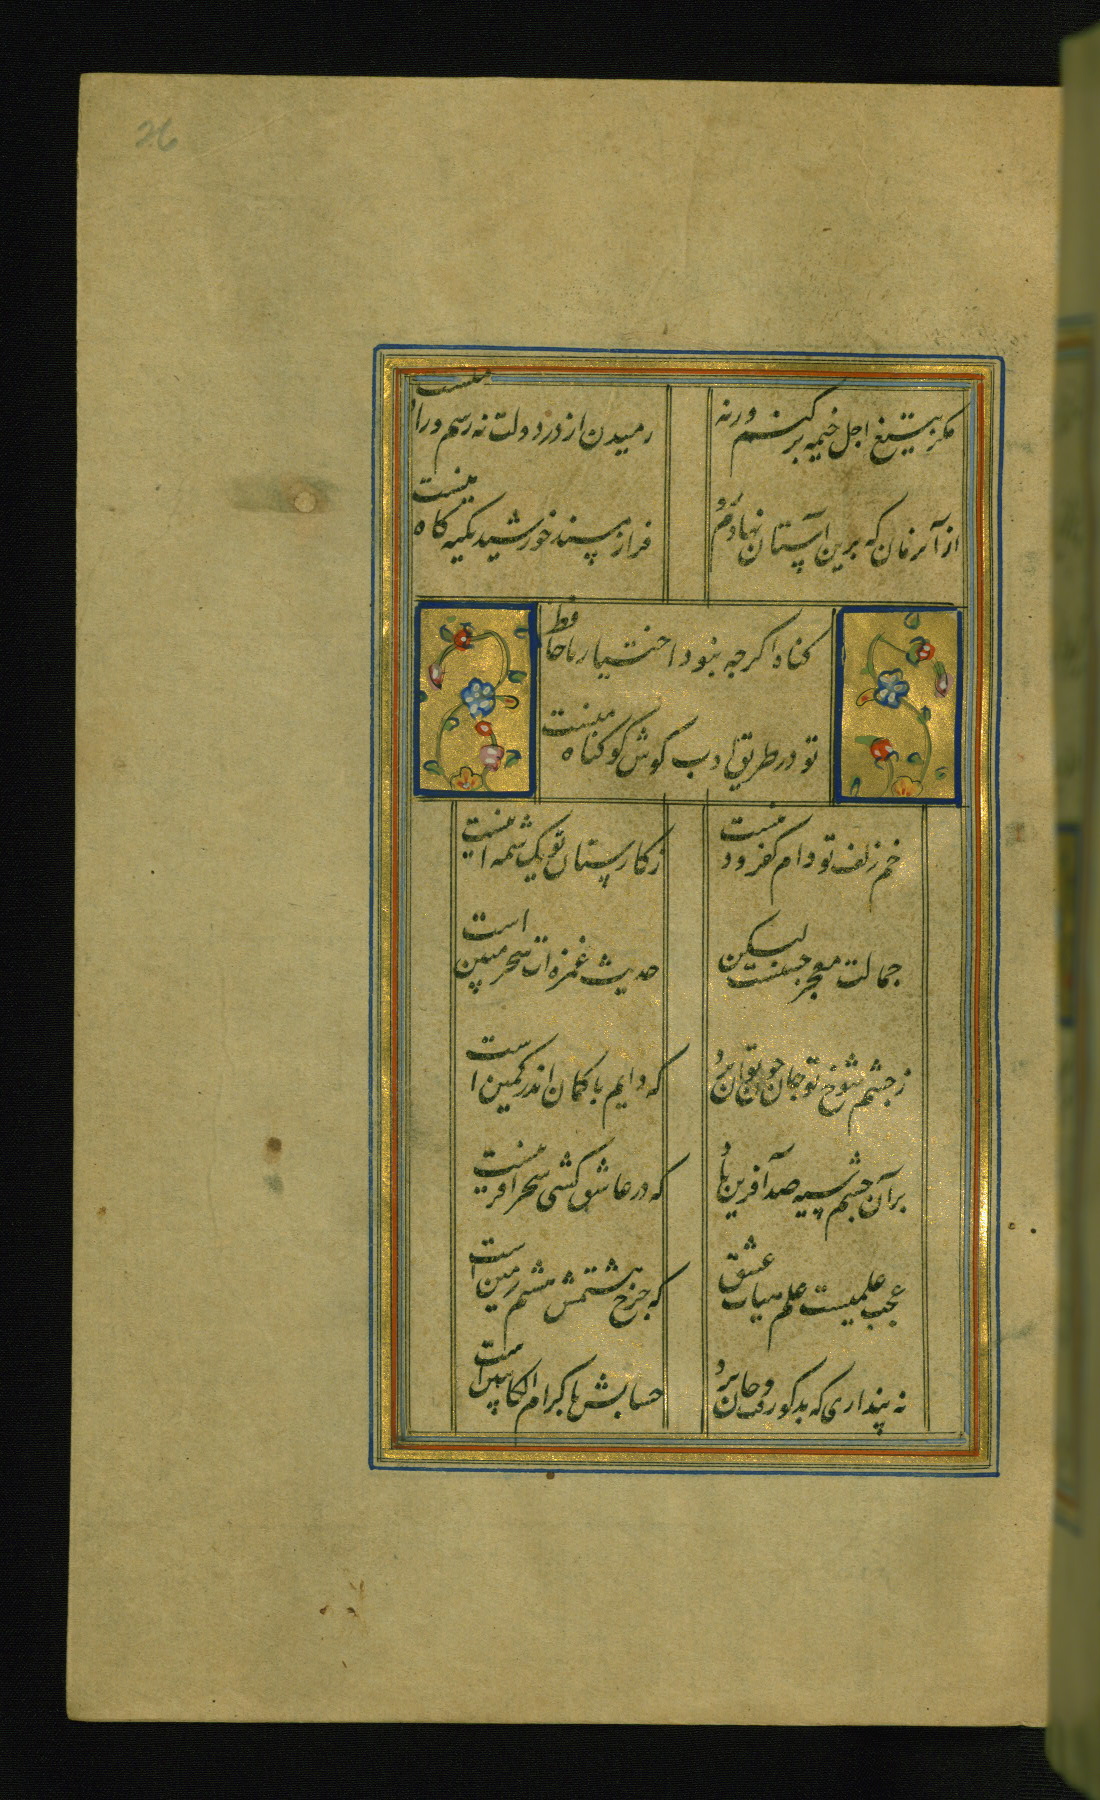 26
مکر بتیغ اجل خیمه بر کنم ورنه
رمیدن از در دولت نه رسم وراه منست
از آنزمان که برین آستان نهادم رو
فراز مسند خورشید تکیه کاه منست
کناه اکرچه نبود اختیار ما حافظ
تو در طریق ادب کوش کو کناه منست
خم زلف تو دام کفر و دینست
ز کارستان تو یک شمه اینست
جمالت معجز حسنست لیکن
حدیث غمزه ات سحر مبین است
ز چشم شوخ تو جان چون توان برد
که دایم با کمان اندر کمین است
بر آن چشم سیه صد آفرین باد
که در عاشق کشی سحر آفرینست
عجب علمیست علم هیات عشق
که چرخ هشتمش هشتم زمین است
نه پنداری که بدکو رفت و جان برد
حسابش با کرام الکاتبین است